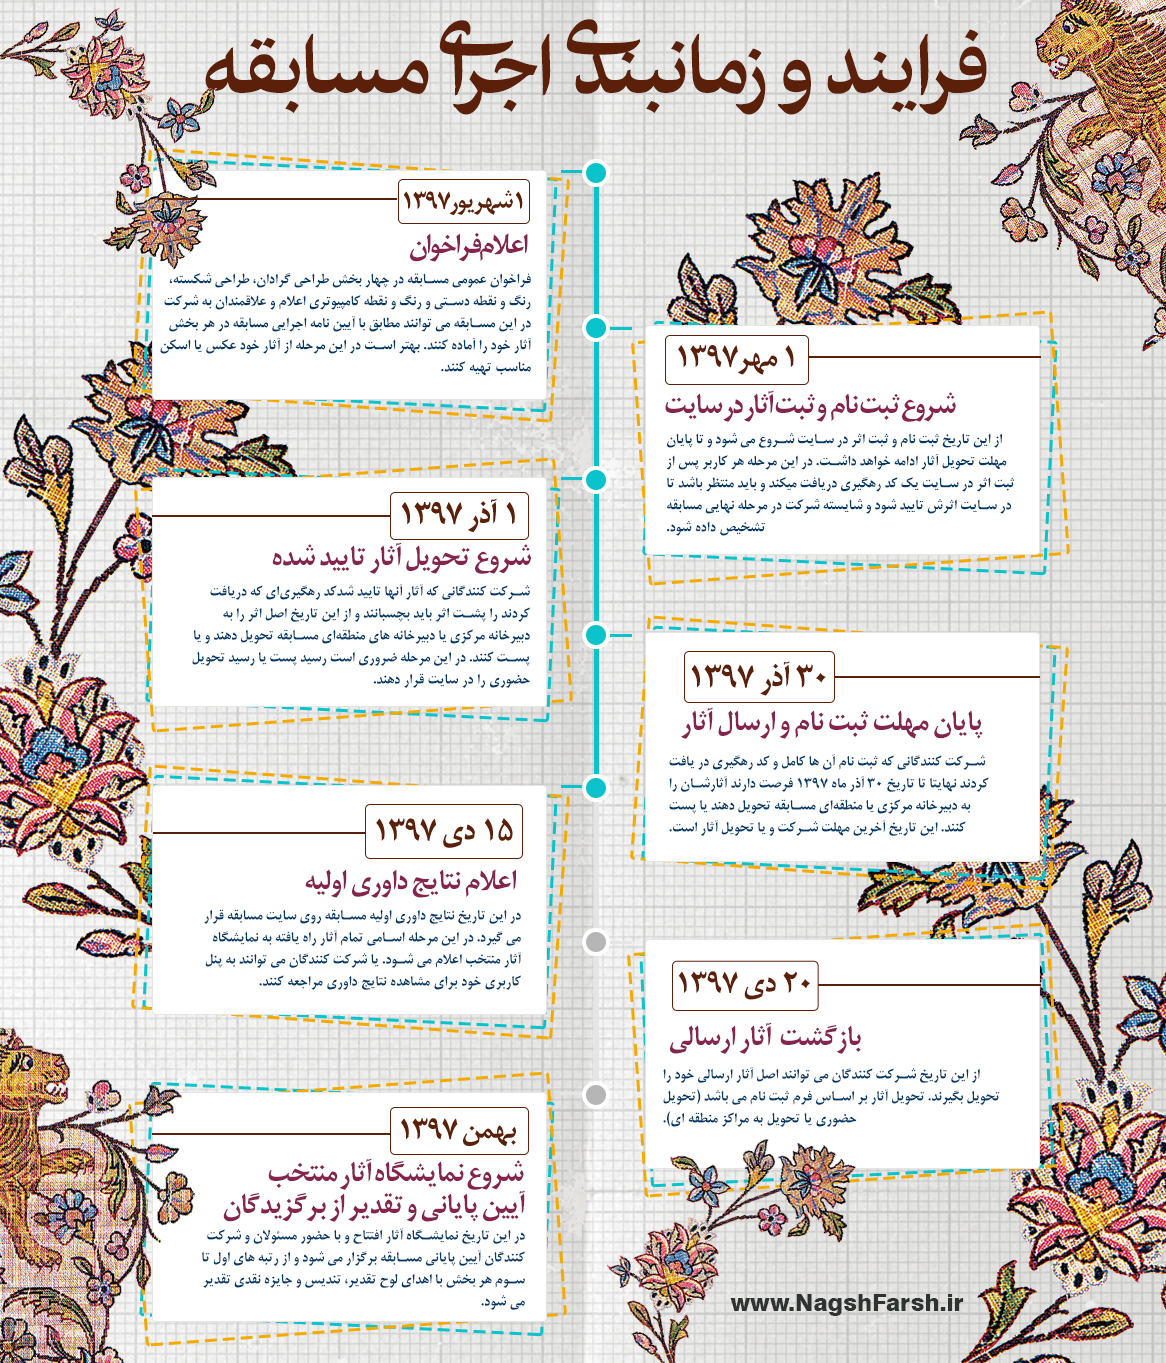 فرایند و زمانبندی اجرای مسابقه
۱شهریور۱۳۹۷
اعلام‌فراخوان
فراخوان عمومی مسابقه در چهار بخش طراحی گرادان، طراحی شکسته،
رنگ و نقطه دستی و رنگ و نقطه کامپیوتری اعلام و علاقمندان به شرکت
در این مسابقه می توانند مطابق با آیین نامه اجرایی مسابقه در هر بخش
آثار خود را آماده کنند. بهتر است در این مرحله از آثار خود عکس یا اسکن
مناسب تهیه کنند.
۱ مهر۱۳۹۷
شروع ثبت‌نام و ثبت‌آثار در سایت
از این تاریخ ثبت نام و ثبت اثر در سایت شروع می شود و تا پایان
مهلت تحویل آثار ادامه خواهد داشت. در این مرحله هر کاربر پس از
ثبت اثر در سایت یک کد رهگیری دریافت میکند و باید منتظر باشد تا
در سایت اثرش تایید شود و شایسته شرکت در مرحله نهایی مسابقه
تشخیص داده شود.
۱ آذر ۱۳۹۷
شروع تحویل آثار تایید شده
شرکت کنندگانی که آثار آنها تایید شدکد رهگیری‌ای که دریافت
کردند را پشت اثر باید بچسبانند و از این تاریخ اصل اثر را به
دبیرخانه مرکزی یا دبیرخانه های منطقه‌ای مسابقه تحویل دهند و یا
پست کنند. در این مرحله ضروری است رسید پست یا رسید تحویل
حضوری را در سایت قرار دهند.
۳۰ آذر ۱۳۹۷
پایان مهلت ثبت نام و ارسال آثار
شرکت کنندگانی که ثبت نام آن ها کامل و کد رهگیری در یافت
کردند نهایتا تا تاریخ ۳۰ آذر ماه ۱۳۹۷ فرصت دارند آثارشان را
به دبیرخانه مرکزی یا منطقه‌ای مسابقه تحویل دهند یا پست
کنند. این تاریخ آخرین مهلت شرکت و یا تحویل آثار است.
۱۵ دی ۱۳۹۷
اعلام نتایج داوری اولیه
در این تاریخ نتایج داوری اولیه مسابقه روی سایت مسابقه قرار
می گیرد. در این مرحله اسامی تمام آثار راه یافته به نمایشگاه
آثار منتخب اعلام می شود. یا شرکت کنندگان می توانند به پنل
کاربری خود برای مشاهده نتایج داوری مراجعه کنند.
۲۰ دی ۱۳۹۷
بازگشت آثار ارسالی
از این تاریخ شرکت کنندگان می توانند اصل آثار ارسالی خود را
تحویل بگیرند. تحویل آثار بر اساس فرم ثبت نام می باشد (تحویل
حضوری یا تحویل به مراکز منطقه ای).
بهمن ۱۳۹۷
شروع نمایشگاه آثار منتخب
آیین پایانی و تقدیر از برگزیدگان
در این تاریخ نمایشگاه آثار افتتاح و با حضور مسئولان و شرکت
کنندگان آیین پایانی مسابقه برگزار می شود و از رتبه های اول تا
سوم هر بخش با اهدای لوح تقدیر، تندیس و جایزه نقدی تقدیر
می شود.
www.NagshFarsh.ir